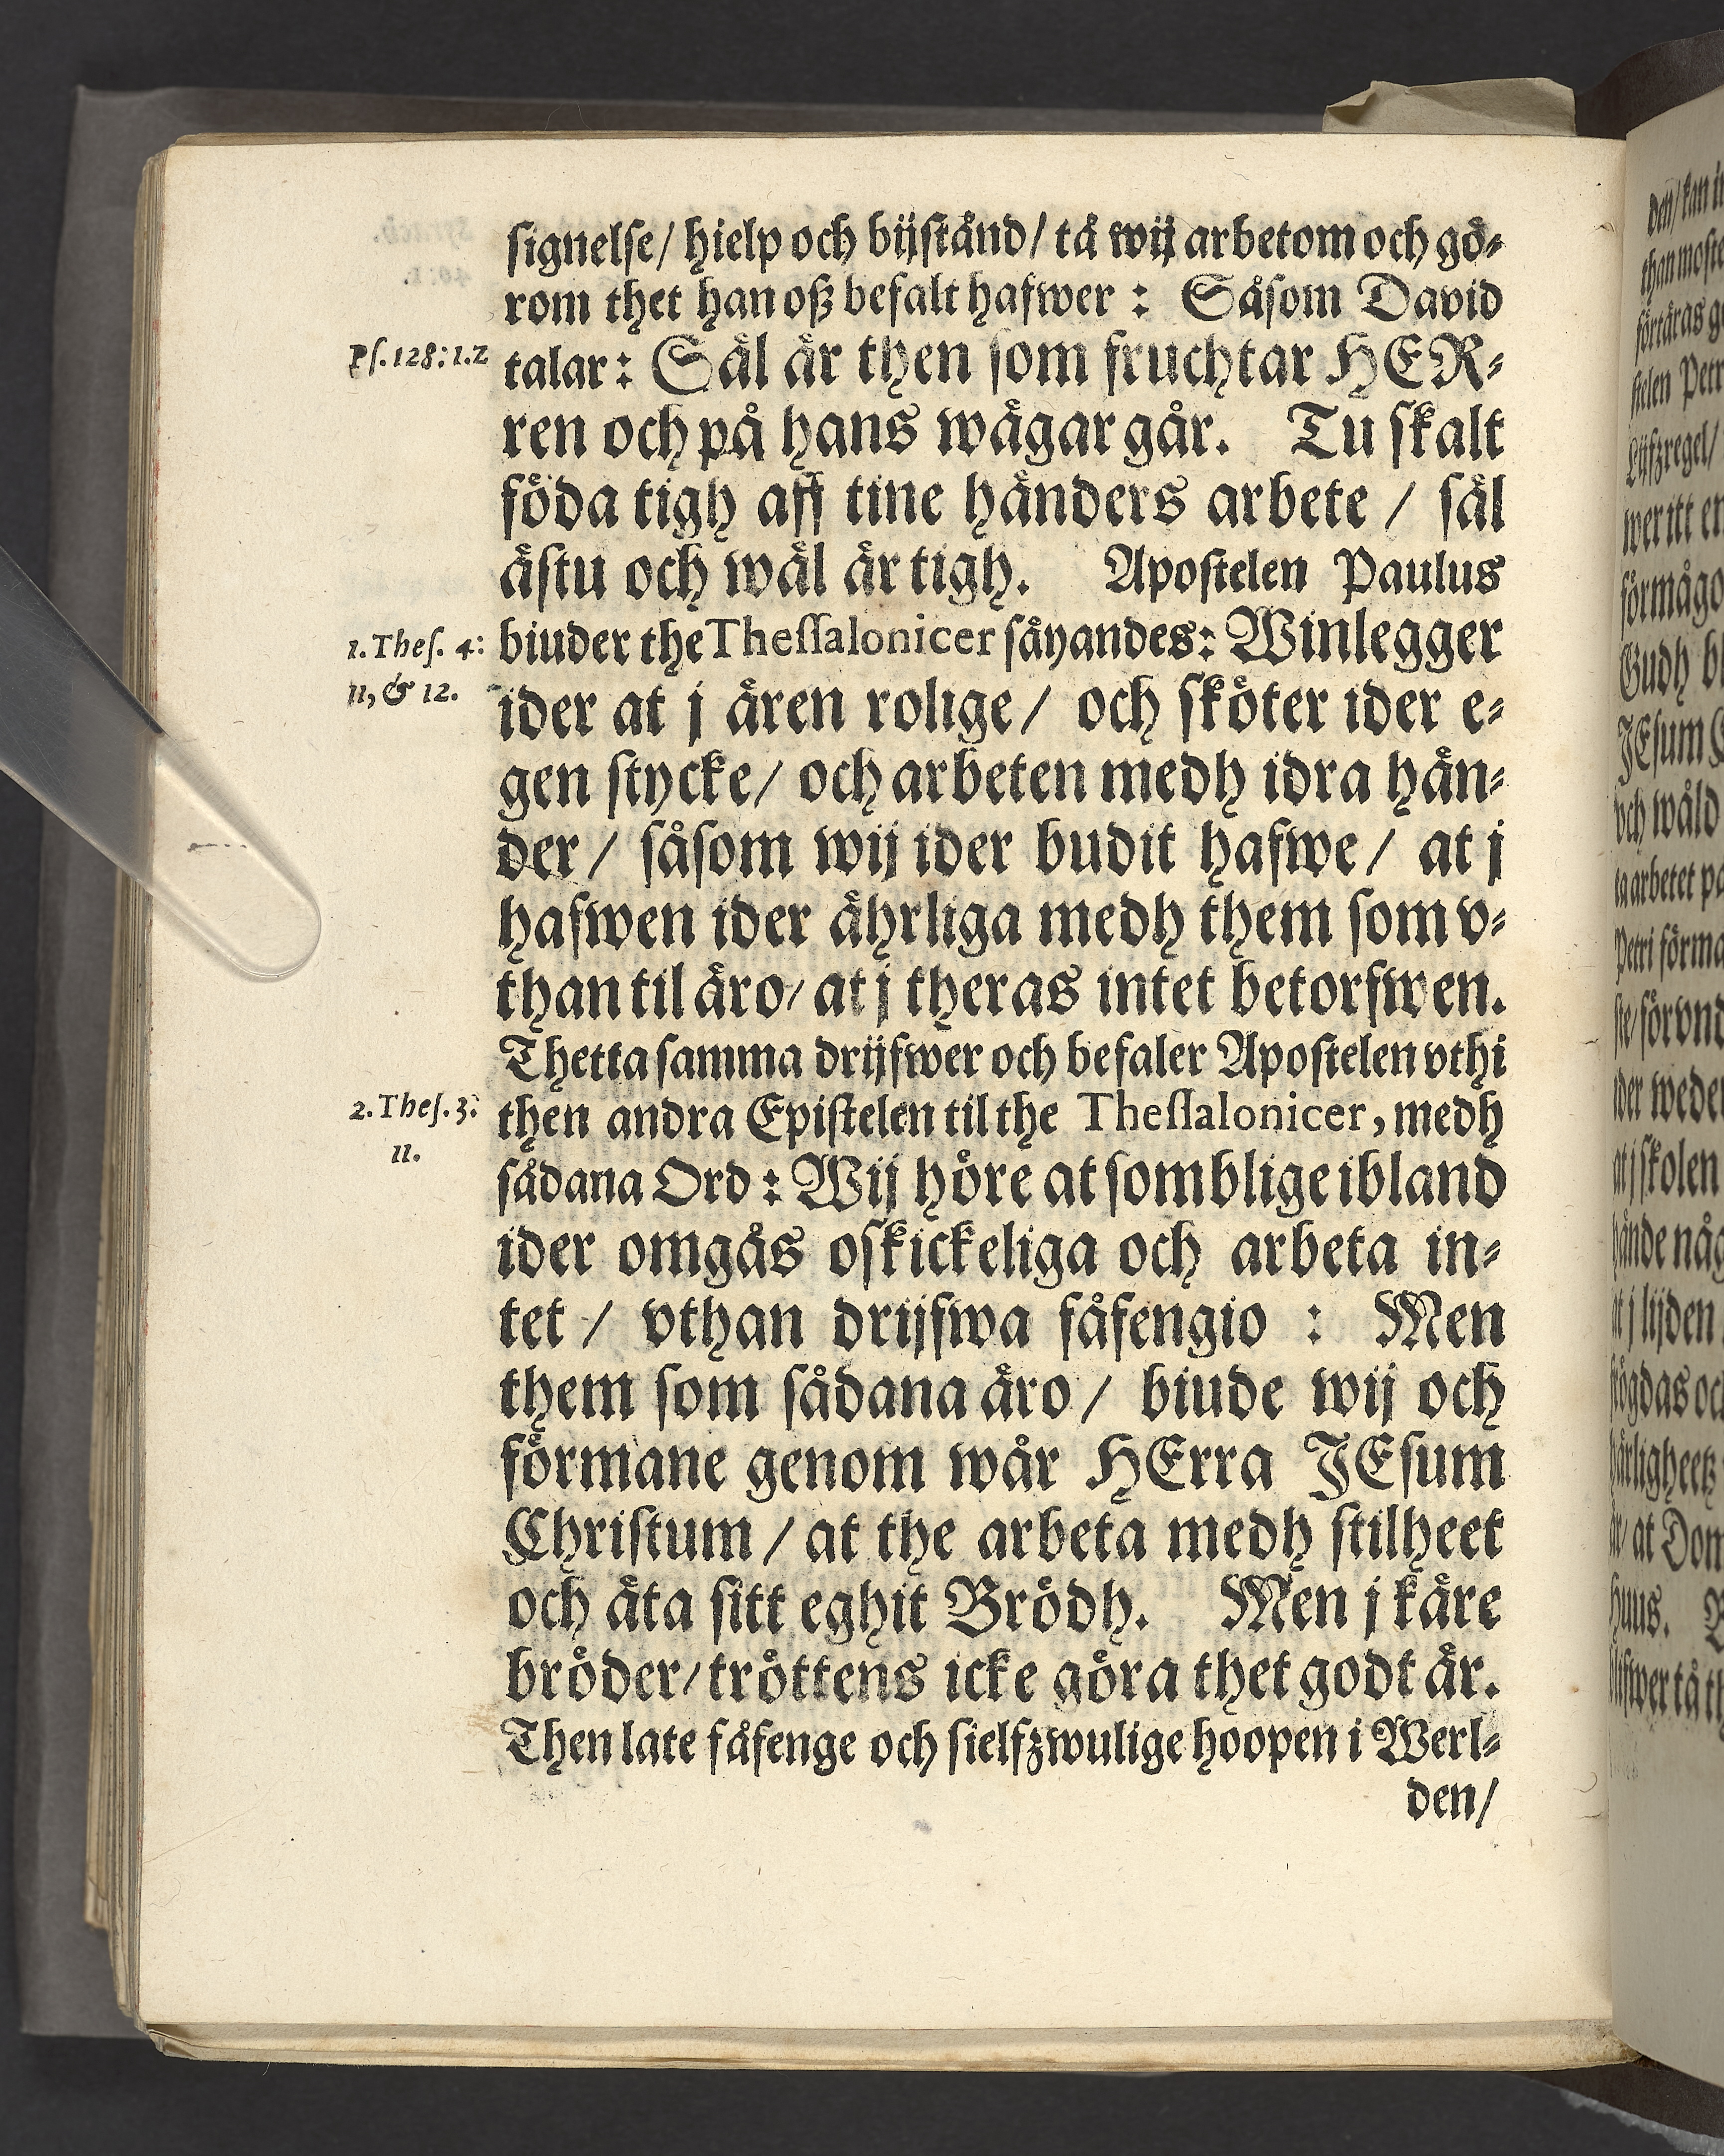 signelse/ hielp och bijstånd/ tå wij arbetom och gö-
rom thet han oß befalt hafwer : Såsom David
Ps. 128: 1. 2
talar: Säl är then som fruchtar HER-
ren och på hans wägar går. Tu skalt
föda tigh aff tine händers arbete / säl
ästu och wäl är tigh. Apostelen Paulus
1. Thes. 4:
biuder the Thessalonicer säyandes: Winlegger
11, & 12.
ider at j ären rolige/ och sköter ider e-
gen stycke/ och arbeten medh idra hän-
der / såsom wij ider budit hafwe/ at j
hafwen ider ährliga medh them som v-
than til äro/ at j theras intet betorfwen.
Thetta samma drijfwer och befaler Apostelen vthi
2. Thes. 3:
then andra Epistelen til the Thessalonicer, medh
11.
sådana Ord : Wij höre at somblige ibland
ider omgås oskickeliga och arbeta in-
tet / vthan drijfwa fåfengio : Men
them som sådana äro/ biude wij och
förmane genom wår HErra JEsum
Christum / at the arbeta medh stilheet
och äta sitt eghit Brödh. Men j käre
bröder/ tröttens icke göra thet godt är.
Then late fåfenge och sielfzwulige hoopen i Werl-
den/